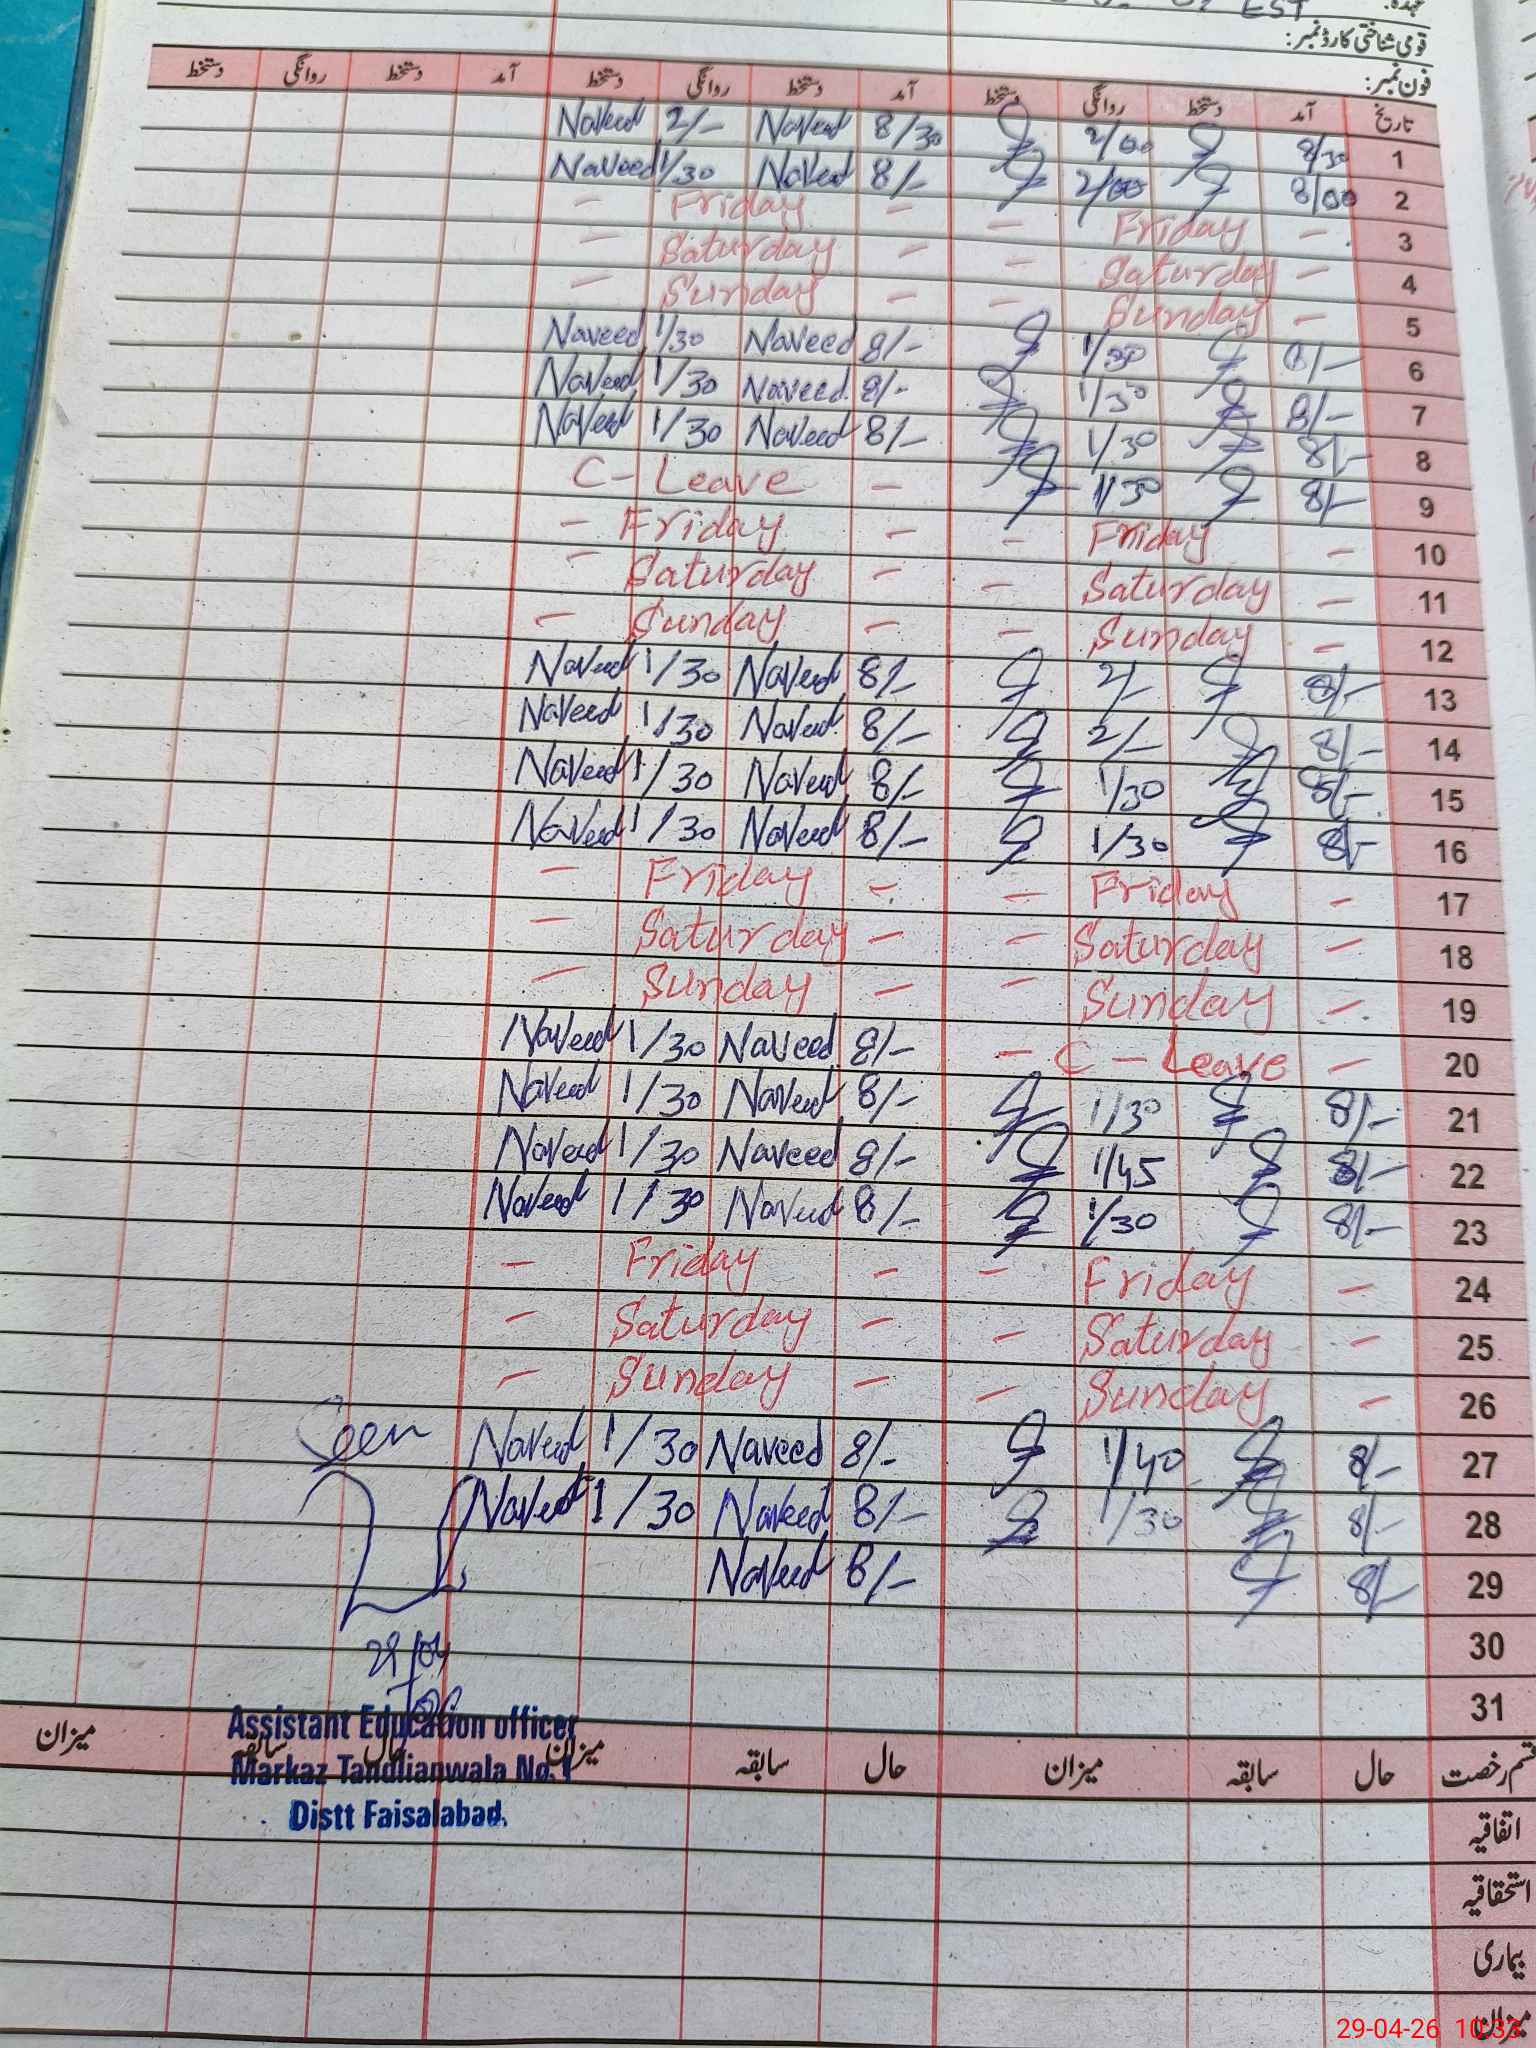 عہدہ: EST
قومی شناختی کارڈ نمبر:
فون نمبر:
تاریخ آمد دستخط روانگی دستخط آمد دستخط روانگی دستخط آمد دستخط روانگی دستخط
1 8/30 2/00 8/30 Naveed 2/- Naveed
2 8/00 2/00 8/- Naveed 1/30 Naveed
3 - Friday - - Friday -
4 - Saturday - - Saturday -
5 - Sunday - - Sunday -
6 8/- 1/30 8/- Naveed 1/30 Naveed
7 8/- 1/30 8/- Naveed 1/30 Naveed
8 8/- 1/30 8/- Naveed 1/30 Naveed
9 8/- 1/30 - C- Leave
10 - Friday - - Friday -
11 - Saturday - - Saturday -
12 - Sunday - - Sunday -
13 8/- 2/- 8/- Naveed 1/30 Naveed
14 8/- 2/- 8/- Naveed 1/30 Naveed
15 8/- 1/30 8/- Naveed 1/30 Naveed
16 8/- 1/30 8/- Naveed 1/30 Naveed
17 - Friday - - Friday -
18 - Saturday - - Saturday -
19 - Sunday - - Sunday -
20 - C - Leave - 8/- Naveed 1/30 Naveed
21 8/- 1/30 8/- Naveed 1/30 Naveed
22 8/- 1/45 8/- Naveed 1/30 Naveed
23 8/- 1/30 8/- Naveed 1/30 Naveed
24 - Friday - - Friday -
25 - Saturday - - Saturday -
26 - Sunday - - Sunday -
27 8/- 1/40 8/- Naveed 1/30 Naveed Seen
28 8/- 1/30 8/- Naveed 1/30 Naveed
29 8/- 8/- Naveed
30
31
Assistant Education officer
Markaz Tandlianwala No.1
Distt Faisalabad.
قسم رخصت حال سابقہ میزان حال سابقہ میزان حال سابقہ میزان
اتفاقیہ
استحقاقیہ
بیماری
میزان
29-04-26 10:33